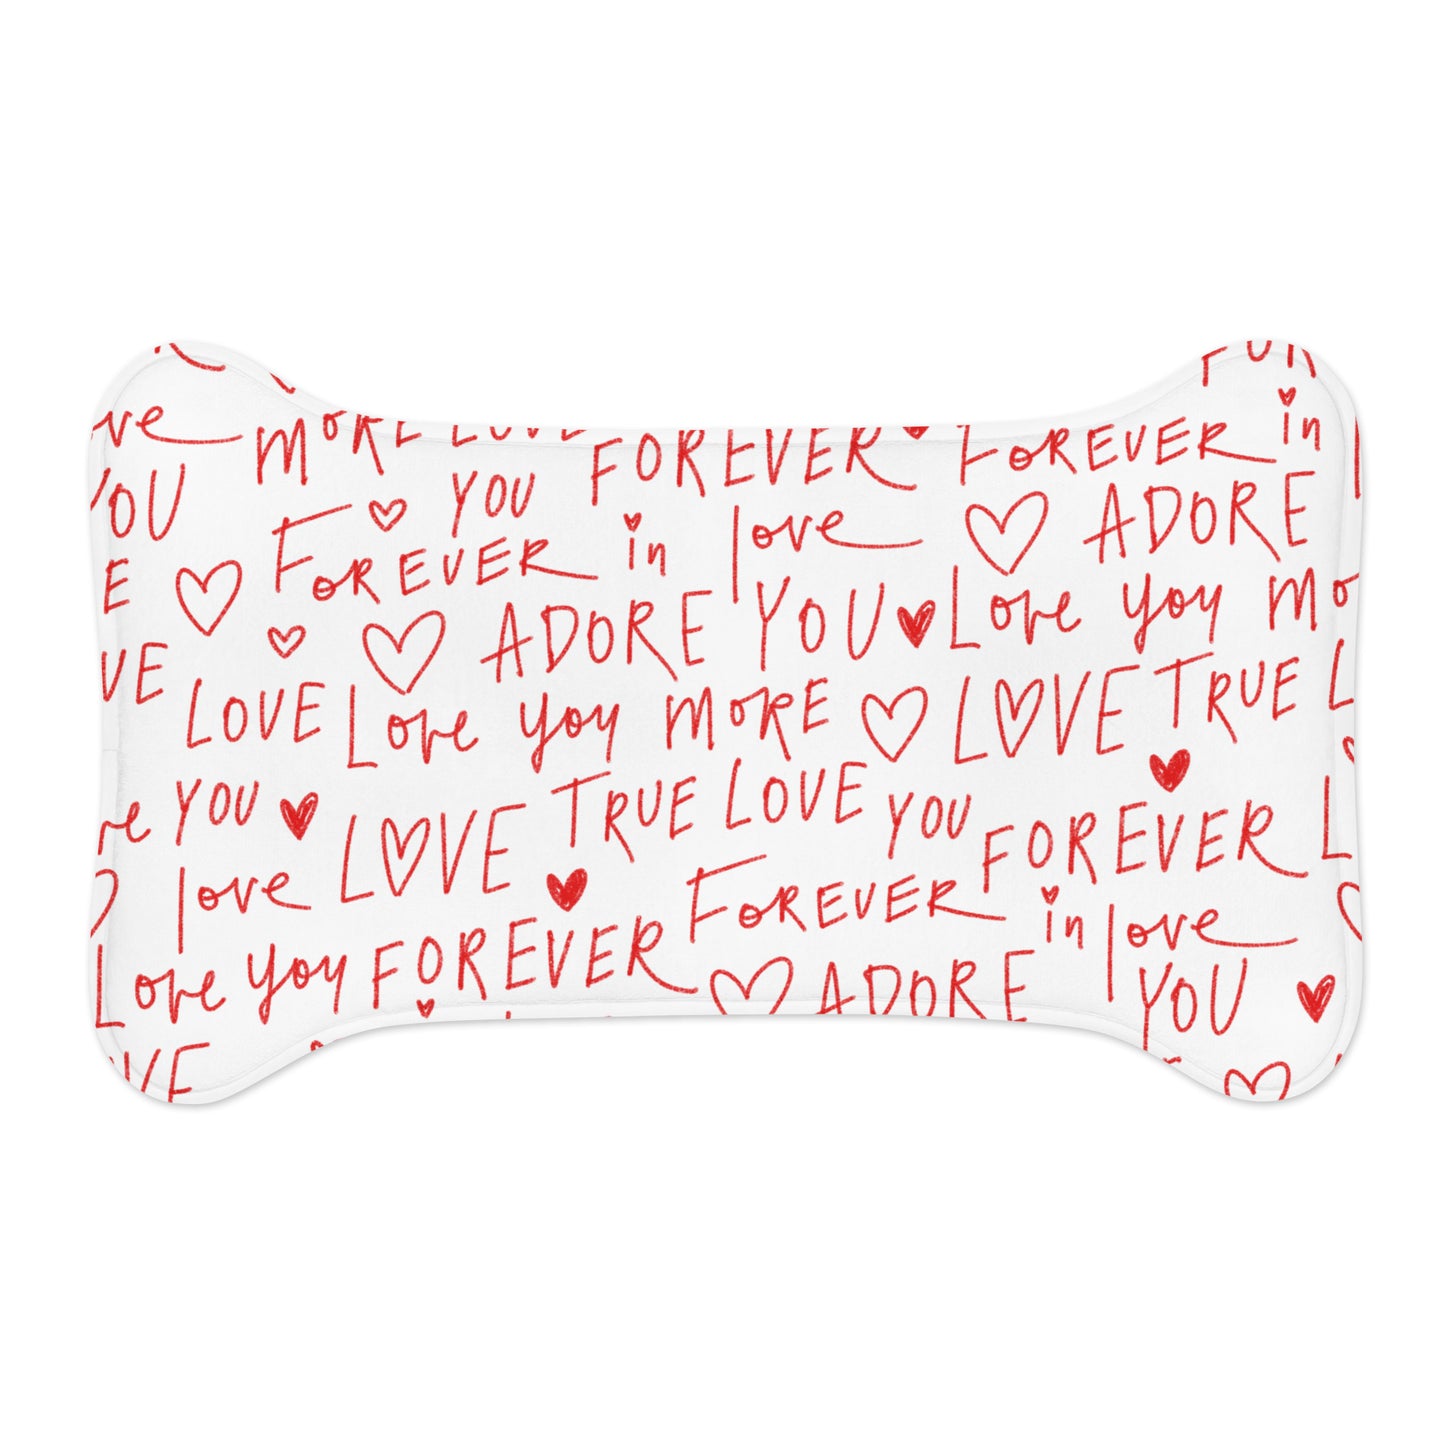 FOR
ve MORE LOVE FOREVER FOREVER in
YOU YOU love ADORE
FOREVER in
E ADORE YOU Love you MO
VE LOVE Love you MORE LOVE TRUE L
re YOU LOVE TRUE LOVE YOU FOREVER L
love FOREVER in love
Love you FOREVER ADORE YOU
VE